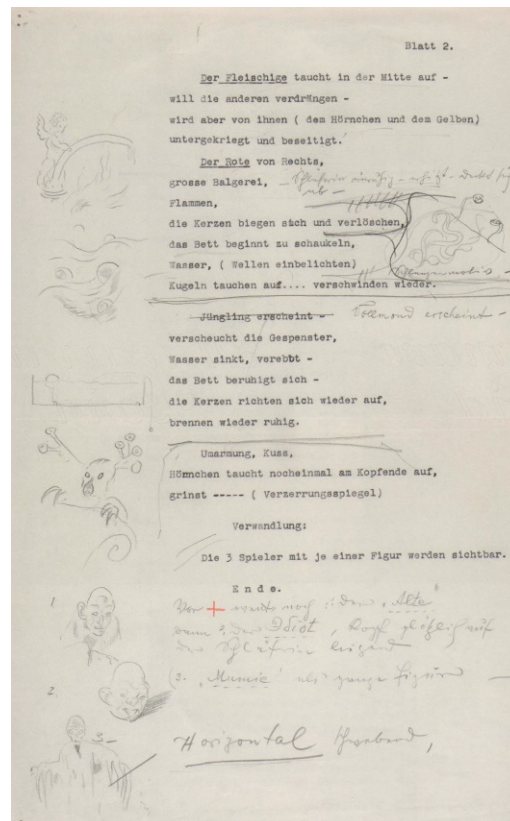 Blatt 2.
Der Fleischige taucht in der Mitte auf -
will die anderen verdrängen -
wird aber von ihnen ( dem Hörnchen und dem Gelben)
untergekriegt und beseitigt.
Der Rote von Rechts,
grosse Balgerei, - Schläferin unruhig -
Flammen,
die Kerzen biegen sich und verlöschen,
das Bett beginnt zu schaukeln,
Wasser, ( Wellen einbelichten)
Kugeln tauchen auf.... verschwinden wieder.
Jüngling erscheint - Vollmond erscheint -
verscheucht die Gespenster,
Wasser sinkt, verebbt -
das Bett beruhigt sich -
die Kerzen richten sich wieder auf,
brennen wieder ruhig.
Umarmung, Kuss,
Hörnchen taucht nocheinmal am Kopfende auf,
grinst ----- ( Verzerrungsspiegel)
Verwandlung:
Die 3 Spieler mit je einer Figur werden sichtbar.
E n d e.
1
Vor + noch : der "Alte"
dann 2. der Idiot, Kopf plötzlich auf
der Schläferin liegend
2.
(3. "Mumie" als ganze Figur -
3 -
Horizontal schwebend,